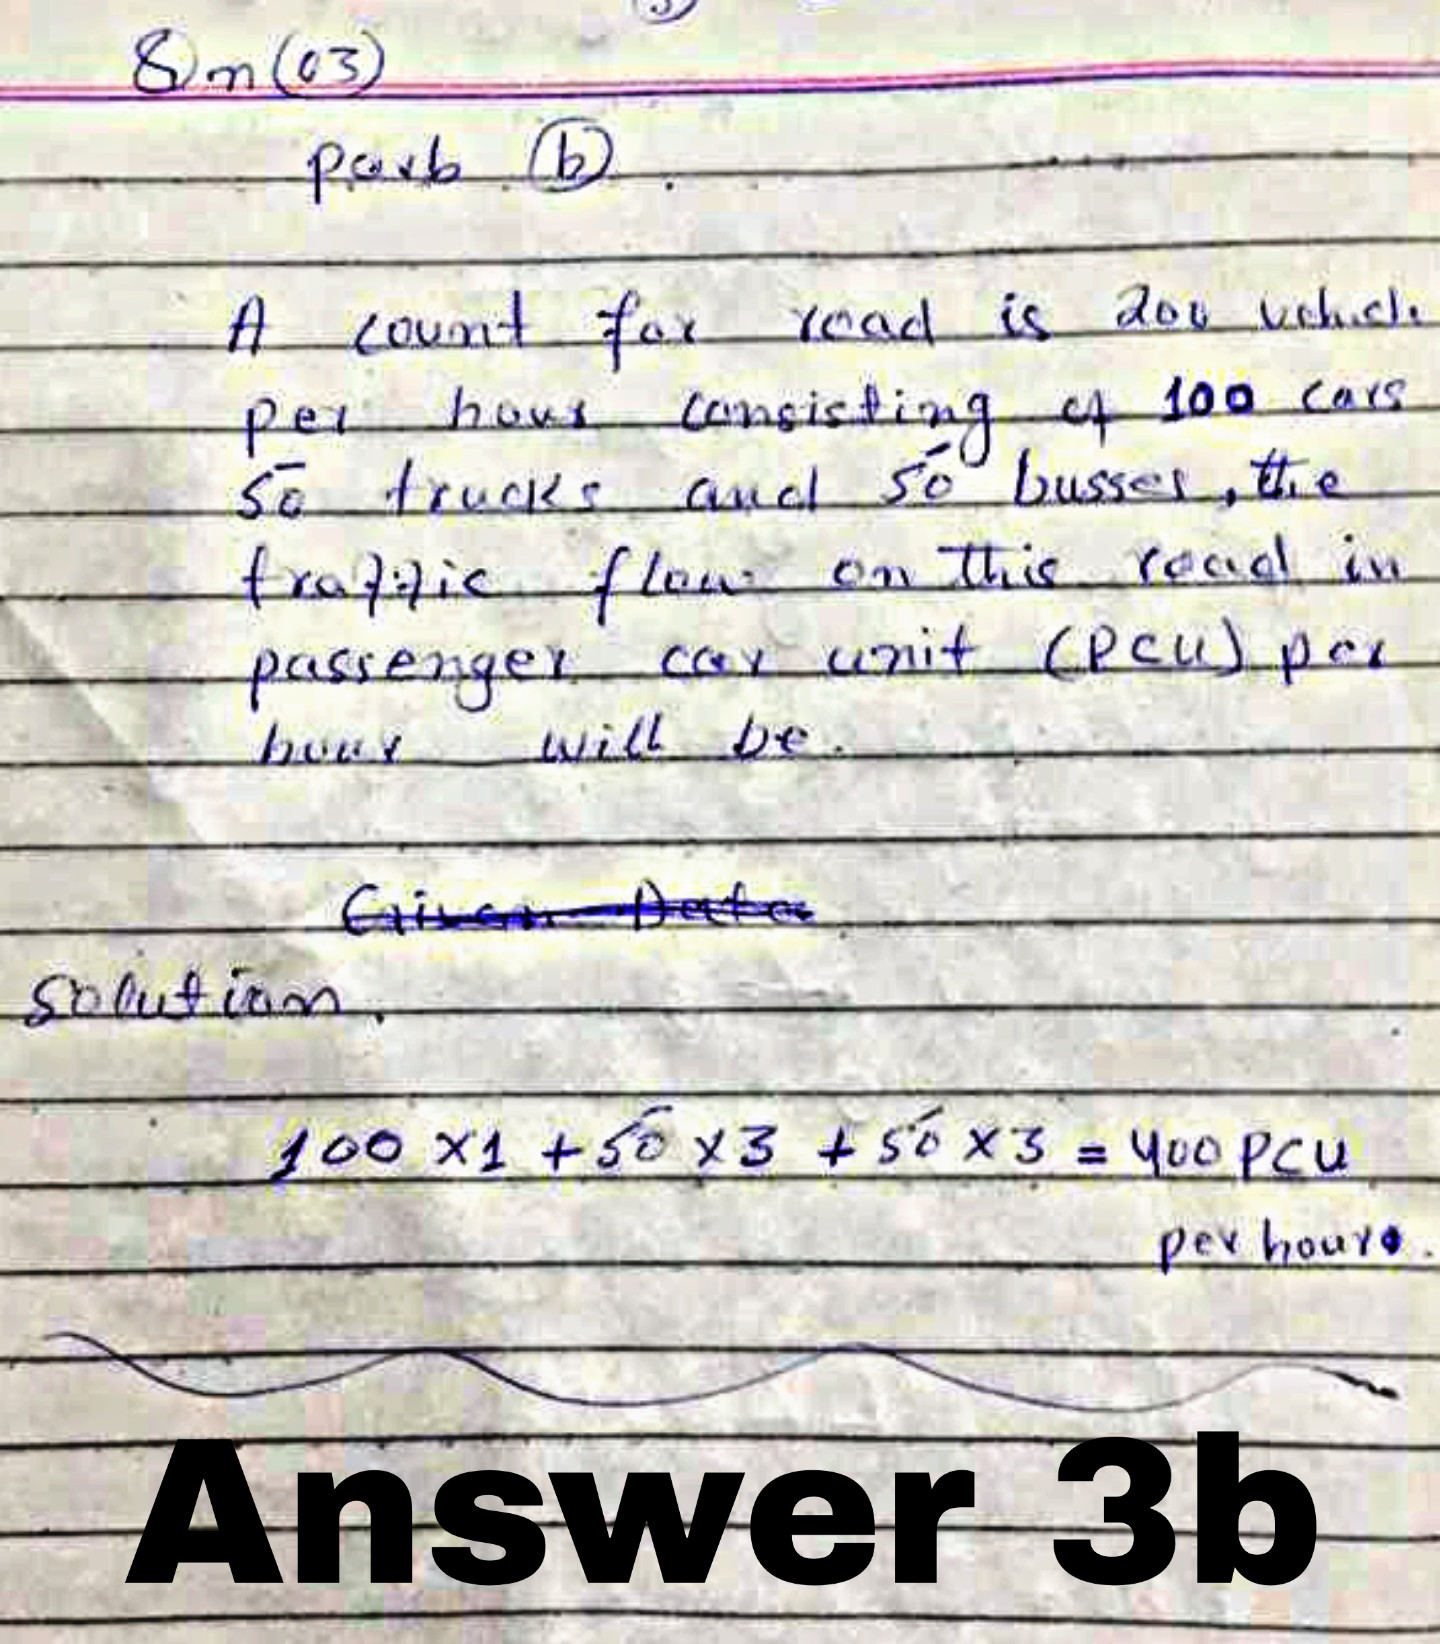 Qn(03)
part (b).
A count for road is 200 vehicle
per hour consisting of 100 cars
50 trucks and 50 busses, the
traffic flow on this road in
passenger car unit (PCU) per
hour will be.
Given Data
solution.
100 x1 + 50 x 3 + 50 x 3 = 400 PCU
per hour.
Answer 3b